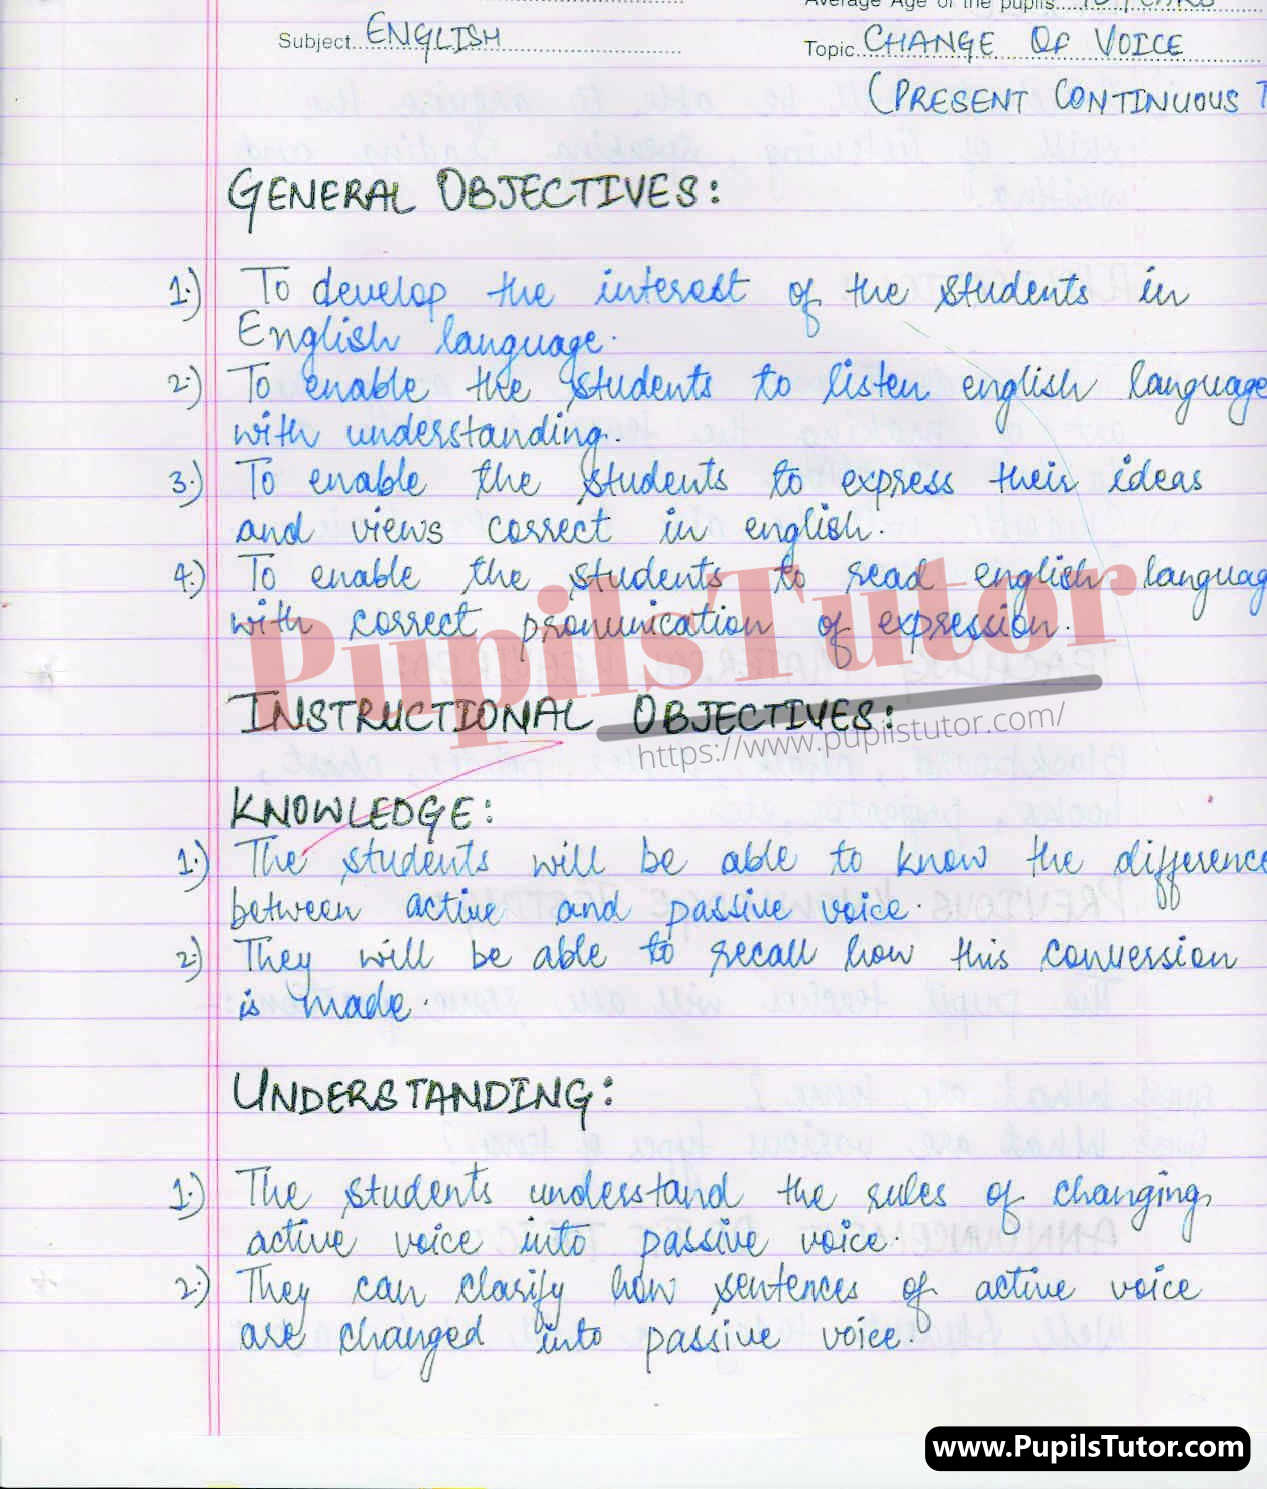 Average Age of the pupils....15 YEARS
Subject ENGLISH
Topic CHANGE OF VOICE
(PRESENT CONTINUOUS T
GENERAL OBJECTIVES:
1.) To develop the interest of the students in
English language.
2.) To enable the students to listen english language
with understanding.
3.) To enable the students to express their ideas
and views correct in english.
4.) To enable the students to read english languag
with correct pronunication of expression.
PupilsTutor
INSTRUCTIONAL OBJECTIVES:
https://www.pupilstutor.com/
KNOWLEDGE:
1.) The students will be able to know the difference
between active and passive voice.
2.) They will be able to recall how this conversion
is made.
UNDERSTANDING:
1.) The students understand the rules of changing
active voice into passive voice.
2.) They can clarify how sentences of active voice
are changed into passive voice.
www.PupilsTutor.com